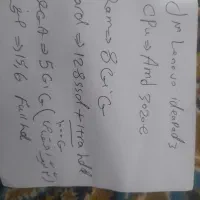 Lenovo ideapad 3
CPU ⇒ Amd 3020e
Ram ⇒ 8 GiG
ard ⇒ 128 ssd + 1tra hdd
GA ⇒ 5 GiG
⇒ 15,6 Full hd